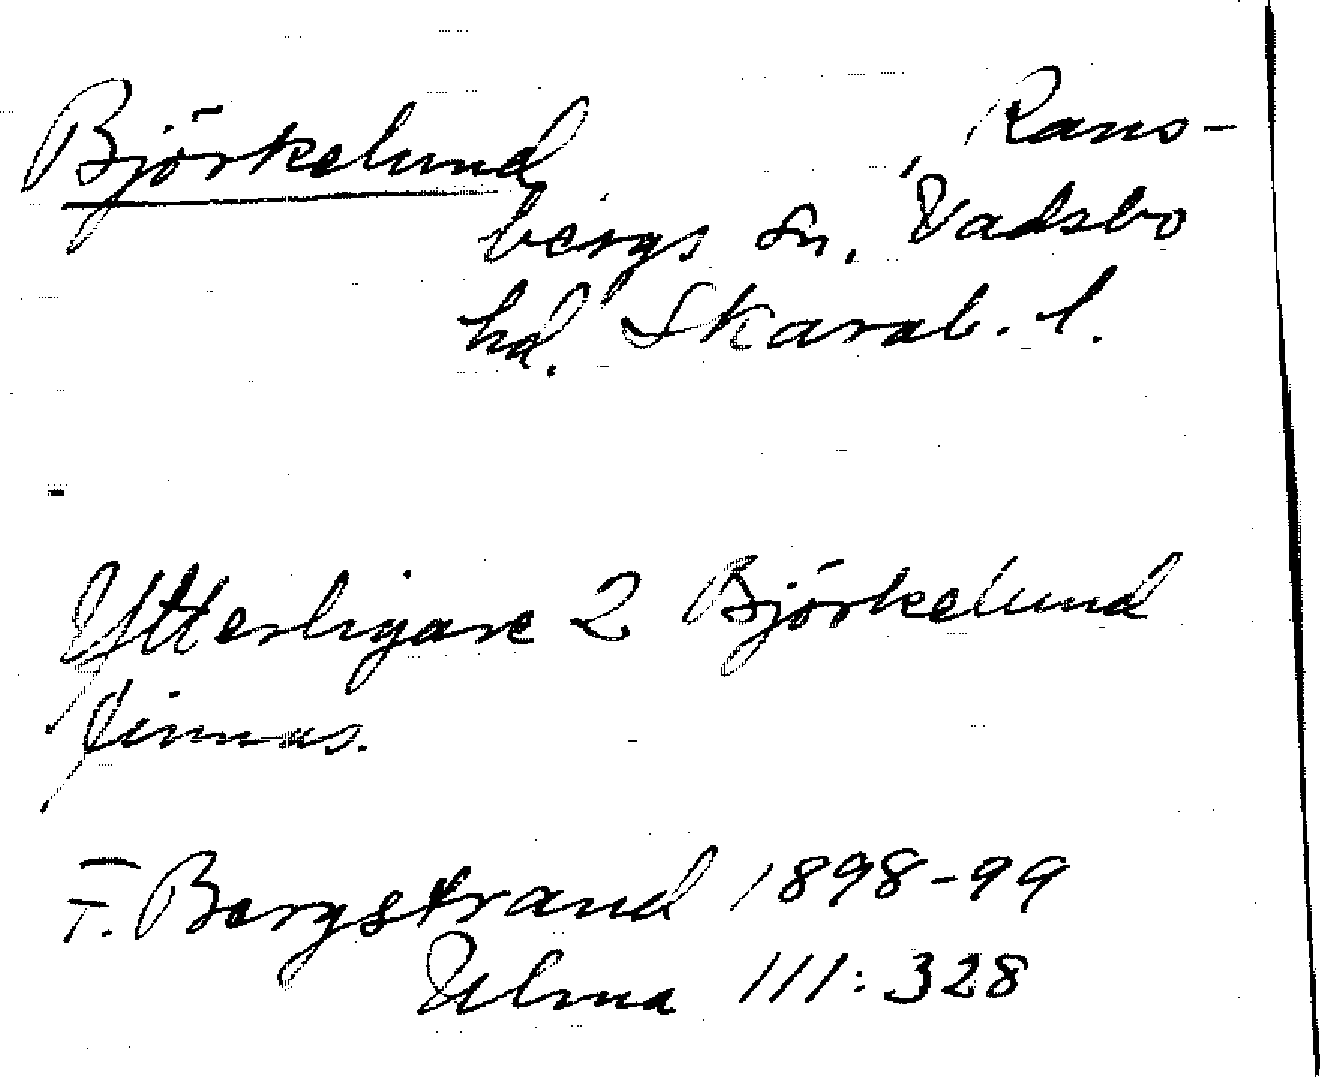 Björkelund, Rans-
bergs sn, Vadsbo
hd. Skarab. l.
Ytterligare 2 Björkelund
finnas.
F. Bergstrand 1898-99
Ulma 111:328